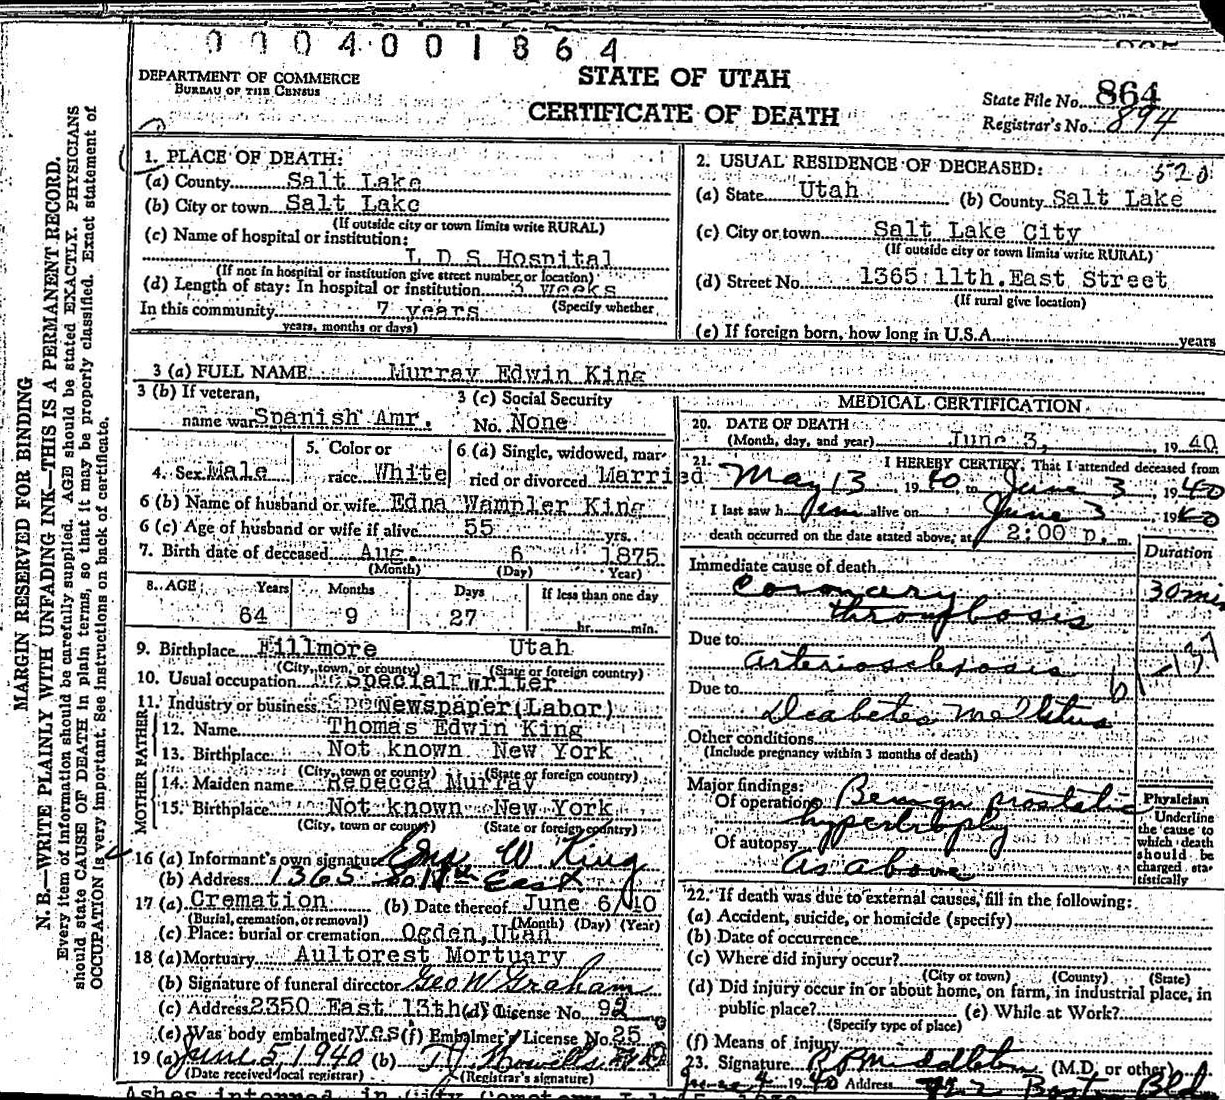 0004001864
DEPARTMENT OF COMMERCE
BUREAU OF THE CENSUS
STATE OF UTAH
CERTIFICATE OF DEATH
State File No. 864
Registrar's No. 894
1. PLACE OF DEATH:
(a) County Salt Lake
(b) City or town Salt Lake
(If outside city or town limits write RURAL)
(c) Name of hospital or institution:
L D S Hospital
(If not in hospital or institution give street number or location)
(d) Length of stay: In hospital or institution 3 weeks
In this community 7 years (Specify whether
years, months or days)
2. USUAL RESIDENCE OF DECEASED: 520
(a) State Utah (b) County Salt Lake
(c) City or town Salt Lake City
(If outside city or town limits write RURAL)
(d) Street No. 1365 11th. East Street
(If rural give location)
(e) If foreign born, how long in U.S.A. years
3 (a) FULL NAME Murray Edwin King
3 (b) If veteran, name war Spanish Amr.
3 (c) Social Security No. None
4. Sex Male
5. Color or race White
6 (a) Single, widowed, married or divorced Married
6 (b) Name of husband or wife Edna Wampler King
6 (c) Age of husband or wife if alive 55 yrs.
7. Birth date of deceased Aug. 6 1875
(Month) (Day) Year)
8. AGE Years Months Days If less than one day
64 9 27 hr. min.
9. Birthplace Fillmore Utah
(City, town, or county) (State or foreign country)
10. Usual occupation Special writer
11. Industry or business Newspaper(Labor)
FATHER
12. Name Thomas Edwin King
13. Birthplace Not known New York
(City, town or county) (State or foreign country)
MOTHER
14. Maiden name Rebecca Murray
15. Birthplace Not known New York
(City, town or county) (State or foreign country)
16 (a) Informant's own signature Edna W King
(b) Address 1365 So 11th East
17 (a) Cremation (b) Date thereof June 6/40
(Burial, cremation, or removal) (Month) (Day) (Year)
(c) Place: burial or cremation Ogden, Utah
18 (a) Mortuary Aultorest Mortuary
(b) Signature of funeral director Geo W Graham
(c) Address 2350 East 13th (d) License No. 92
(e) Was body embalmed? yes (f) Embalmer's License No. 25
19 (a) June 5 1940 (b) T J Howells MD
(Date received local registrar) (Registrar's signature)
MEDICAL CERTIFICATION
20. DATE OF DEATH
(Month, day, and year) June 3, 1940
21. I HEREBY CERTIFY, That I attended deceased from
May 13, 1940, to June 3, 1940
I last saw h im alive on June 3 1940
death occurred on the date stated above, at 2:00 p. m.
Immediate cause of death Duration
coronary 30 min
thrombosis
Due to
arteriosclerosis
Due to
Diabetes Mellitus
Other conditions
(Include pregnancy within 3 months of death)
Major findings:
Of operations Benign prostatic
hypertrophy
Of autopsy
as above
Physician
Underline
the cause to
which death
should be
charged sta-
tistically
22. If death was due to external causes, fill in the following:
(a) Accident, suicide, or homicide (specify)
(b) Date of occurrence
(c) Where did injury occur?
(City or town) (County) (State)
(d) Did injury occur in or about home, on farm, in industrial place, in
public place? (e) While at Work?
(Specify type of place)
(f) Means of injury
23. Signature R P Middleton (M.D. or other)
June 4 1940 Address Boston Bld
MARGIN RESERVED FOR BINDING
N. B.—WRITE PLAINLY WITH UNFADING INK—THIS IS A PERMANENT RECORD.
Every item of information should be carefully supplied. AGE should be stated EXACTLY. PHYSICIANS
should state CAUSE OF DEATH in plain terms, so that it may be properly classified. Exact statement of
OCCUPATION is very important. See instructions on back of certificate.
Ashes interred in City Cemetery